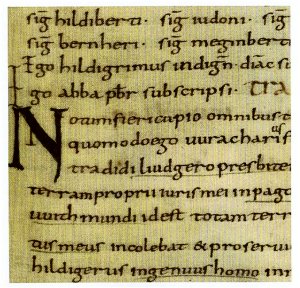 sig hildiberti · sig iudoni · sig
sig bernheri · sig meginberti
Ego hildigrimus indign diac si
Ego abba pbr subscripsi · TRA
Notum fieri cupio omnibus t
quomodo ego uuracharius
tradidi liudgero presbiter
terram proprii iuris mei in pago
uuithmundi id est totam terr
tus meus incolebat & proserui
hildigerus ingenuus homo inn